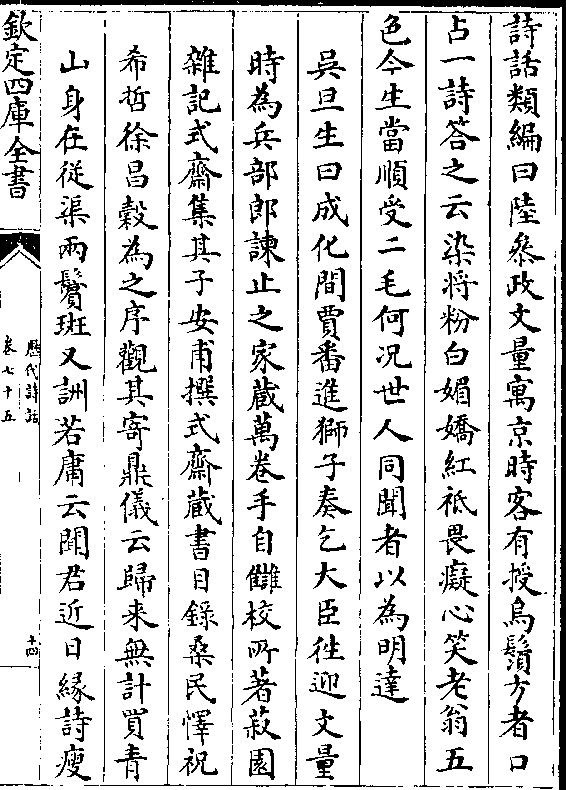 詩話類編曰陸叅政文量寓京時客有授烏鬚方者口
占一詩答之云染将粉白媚嬌紅祗畏癡心笑老翁五
色今生當順受二毛何况世人同聞者以為明達
吳旦生曰成化間賈番進獅子奏乞大臣徃迎文量
時為兵部郎諫止之家蔵萬卷手自讎校所著菽園
雜記式齋集其子安甫撰式齋蔵書目錄桑民懌祝
希哲徐昌糓為之序觀其寄鼎儀云歸来無計買青
山身在従渠兩鬢斑又詶若庸云聞君近日緣詩瘦
欽定四庫全書
歴代詩話
卷七十五
十四